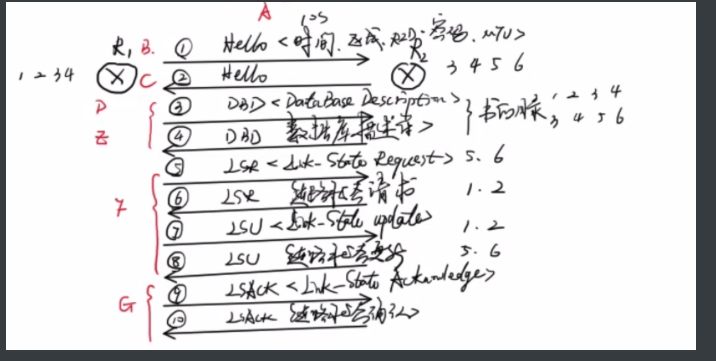 A
10s
R1 B. ① Hello <时间. 区域. RID. 密码. MTU>
R2
1 2 3 4 C ② Hello 3 4 5 6
D ③ DBD <DataBase Description> 书的目录 1 2 3 4
E ④ DBD 数据库描述 > 3 4 5 6
⑤ LSR <Link-State Request> 5. 6
F ⑥ LSR 链路状态请求 1. 2
⑦ LSU <Link-State update> 1. 2
⑧ LSU 链路状态更新 5. 6
G ⑨ LSACK <Link-State Acknowledge>
⑩ LSACK 链路状态确认>